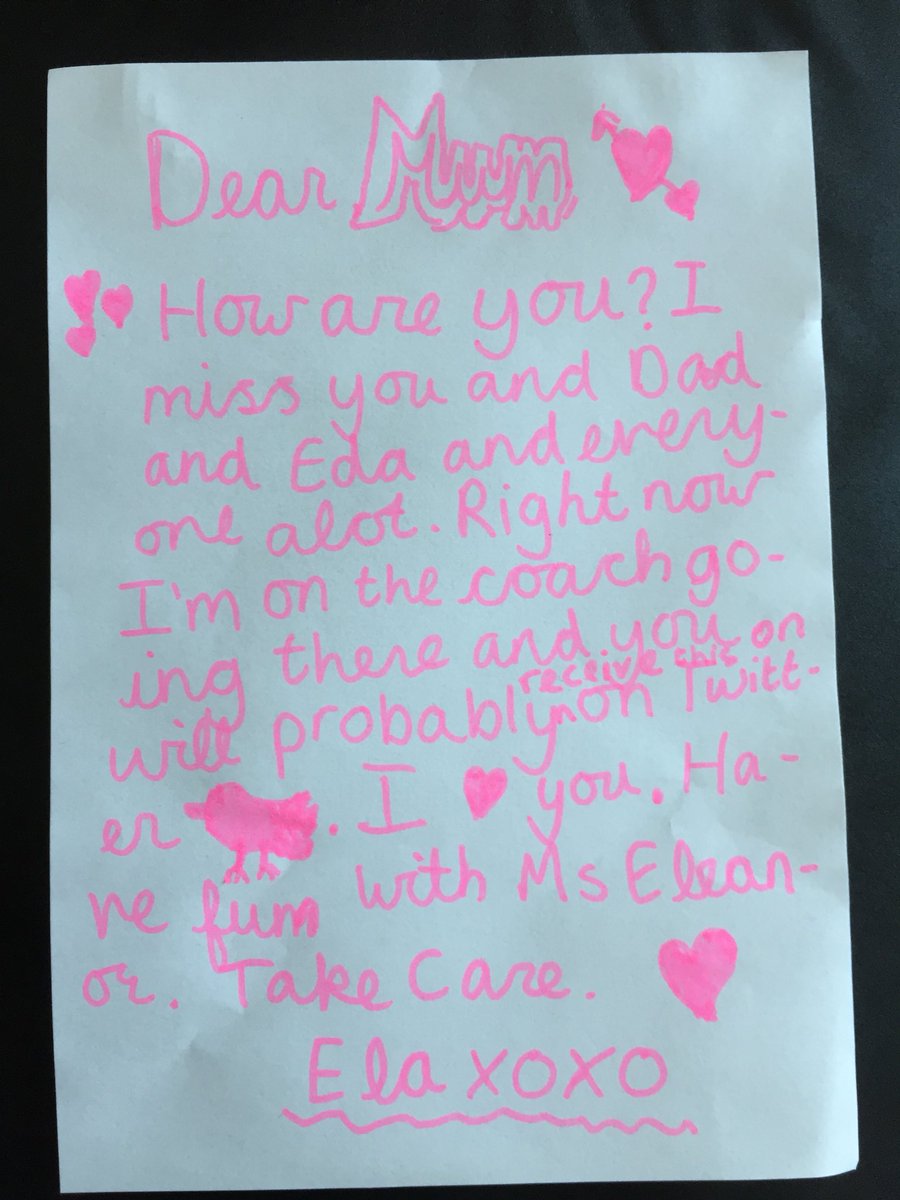 Dear Mum
How are you? I
miss you and Dad
and Eda and every-
one alot. Right now
I'm on the coach go-
ing there and you
will probably receive this on on Twitt-
er. I you. Ha-
ve fum with Ms Elean-
or. Take Care.
Ela xoxo